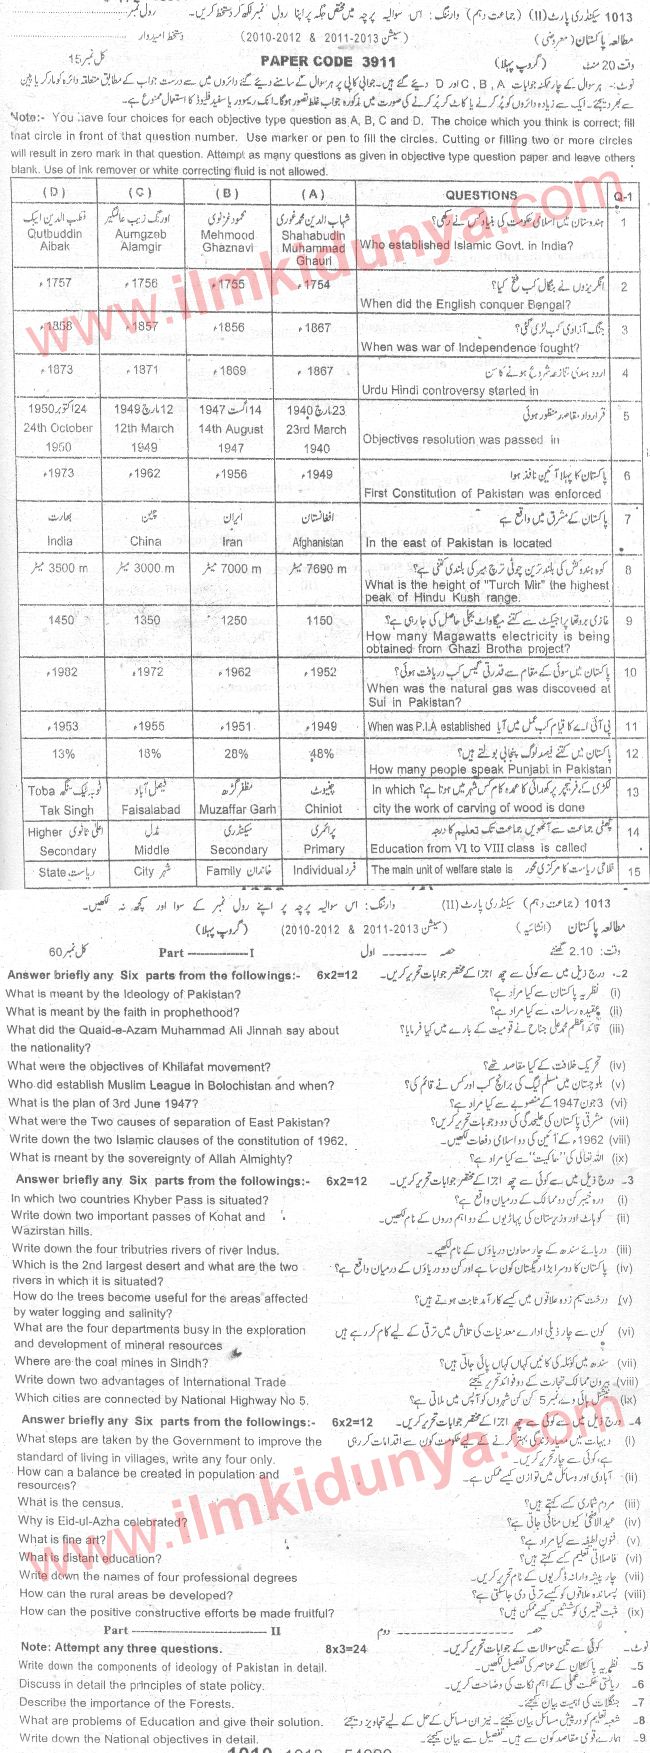 1013 سیکنڈری پارٹ (II) (جماعت دہم) وارننگ: اس سوالیہ پرچہ میں مختص جگہ پر اپنا رول نمبر لکھ کر دستخط کریں۔ رول نمبر
مطالعہ پاکستان (معروضی) (سیشن 2011-2013 & 2010-2012) دستخط امیدوار
وقت 20 منٹ (گروپ پہلا) PAPER CODE 3911 کل نمبر 15
نوٹ:- ہر سوال کے چار ممکنہ جوابات A, B, C اور D دیئے گئے ہیں۔ جوابی کاپی پر ہر سوال کے سامنے دیئے گئے دائروں میں سے درست جواب کے مطابق متعلقہ دائرہ کو مارکر یا پین
سے بھر دیجئے۔ ایک سے زیادہ دائروں کو پُر کرنے یا کاٹ کر پُر کرنے کی صورت میں مذکورہ جواب غلط تصور ہوگا۔ انک ریموور یا سفید فلیوڈ کا استعمال ممنوع ہے۔
Note:- You have four choices for each objective type question as A, B, C and D. The choice which you think is correct; fill
that circle in front of that question number. Use marker or pen to fill the circles. Cutting or filling two or more circles
will result in zero mark in that question. Attempt as many questions as given in objective type question paper and leave others
blank. Use of ink remover or white correcting fluid is not allowed.
(D) (C) (B) (A) QUESTIONS Q-1
قطب الدین ایبک اورنگ زیب عالمگیر محمود غزنوی شہاب الدین محمد غوری ہندوستان میں اسلامی حکومت کی بنیاد کس نے رکھی؟ 1
Qutbuddin Aibak Aurngzeb Alamgir Mehmood Ghaznavi Shahabudin Muhammad Ghauri Who established Islamic Govt. in India?
1757ء 1756ء 1755ء 1754ء انگریزوں نے بنگال کب فتح کیا؟ 2
When did the English conquer Bengal?
1858ء 1857ء 1856ء 1867ء جنگ آزادی کب لڑی گئی؟ 3
When was war of Independence fought?
1873ء 1871ء 1869ء 1867ء اردو ہندی تنازعہ شروع ہونے کا سن 4
Urdu Hindi controversy started in
24 اکتوبر 1950 12 مارچ 1949 14 اگست 1947 23 مارچ 1940 قرارداد مقاصد منظور ہوئی 5
24th October 1950 12th March 1949 14th August 1947 23rd March 1940 Objectives resolution was passed in
1973ء 1962ء 1956ء 1949ء پاکستان کا پہلا آئین نافذ ہوا 6
First Constitution of Pakistan was enforced
بھارت چین ایران افغانستان پاکستان کے مشرق میں واقع ہے 7
India China Iran Afghanistan In the east of Pakistan is located
3500 m میٹر 3000 m میٹر 7000 m میٹر 7690 m میٹر کوہ ہندوکش کی بلند ترین چوٹی ترچ میر کی بلندی کتنی ہے؟ 8
What is the height of "Turch Mir" the highest
peak of Hindu Kush range.
1450 1350 1250 1150 غازی بروتھا پراجیکٹ سے کتنے میگاواٹ بجلی حاصل کی جا رہی ہے؟ 9
How many Magawatts electricity is being
obtained from Ghazi Brotha project?
1982ء 1972ء 1962ء 1952ء پاکستان میں سوئی کے مقام سے قدرتی گیس کب دریافت ہوئی؟ 10
When was the natural gas was discoveed at
Sui in Pakistan?
1953ء 1955ء 1951ء 1949ء When was P.I.A established پی آئی اے کا قیام کب عمل میں آیا 11
13% 18% 28% 48% پاکستان میں کتنے فیصد لوگ پنجابی بولتے ہیں؟ 12
How many people speak Punjabi in Pakistan
ٹوبہ ٹیک سنگھ Toba Tak Singh فیصل آباد Faisalabad مظفر گڑھ Muzaffar Garh چنیوٹ Chiniot In which لکڑی کے فرنیچر پر کھدائی کا عمدہ کام کس شہر میں ہوتا ہے؟ 13
city the work of carving of wood is done
Higher اعلیٰ ثانوی Secondary مڈل Middle سیکنڈری Secondary پرائمری Primary چھٹی جماعت سے آٹھویں جماعت تک تعلیم کا درجہ 14
Education from VI to VIII class is called
State ریاست City شہر Family خاندان Individual فرد The main unit of welfare state is فلاحی ریاست کا مرکزی محور 15
1013 (جماعت دہم) سیکنڈری پارٹ (II) وارننگ: اس سوالیہ پرچہ پر اپنے رول نمبر کے سوا اور کچھ نہ لکھیں۔
مطالعہ پاکستان (انشائیہ) (گروپ پہلا) (سیشن 2011-2013 & 2010-2012)
وقت: 2.10 گھنٹے حصہ اول Part I کل نمبر 60
Answer briefly any Six parts from the followings:- 6x2=12 2۔ درج ذیل میں سے کوئی سے چھ اجزا کے مختصر جوابات تحریر کریں۔
What is meant by the Ideology of Pakistan? (i) نظریہ پاکستان سے کیا مراد ہے؟
What is meant by the faith in prophethood? (ii) عقیدہ رسالت سے کیا مراد ہے؟
What did the Quaid-e-Azam Muhammad Ali Jinnah say about the nationality? (iii) قائد اعظم محمد علی جناح نے قومیت کے بارے میں کیا فرمایا؟
What were the objectives of Khilafat movement? (iv) تحریک خلافت کے کیا مقاصد تھے؟
Who did establish Muslim League in Bolochistan and when? (v) بلوچستان میں مسلم لیگ کی برانچ کب اور کس نے قائم کی؟
What is the plan of 3rd June 1947? (vi) 3 جون 1947 کے منصوبے سے کیا مراد ہے؟
What were the Two causes of separation of East Pakistan? (vii) مشرقی پاکستان کی علیحدگی کی دو وجوہات تحریر کریں؟
Write down the two Islamic clauses of the constitution of 1962. (viii) 1962ء کے آئین کی دو اسلامی دفعات لکھیں۔
What is meant by the sovereignty of Allah Almighty? (ix) اللہ تعالیٰ کی "حاکمیت" سے کیا مراد ہے؟
Answer briefly any Six parts from the followings:- 6x2=12 3۔ درج ذیل میں سے کوئی سے چھ اجزا کے مختصر جوابات تحریر کریں۔
In which two countries Khyber Pass is situated? (i) درہ خیبر کن دو ممالک کے درمیان واقع ہے؟
Write down two important passes of Kohat and Wazirstan hills. (ii) کوہاٹ اور وزیرستان کی پہاڑیوں کے دو اہم دروں کے نام لکھیں۔
Write down the four tributries rivers of river Indus. (iii) دریائے سندھ کے چار معاون دریاؤں کے نام لکھیے۔
Which is the 2nd largest desert and what are the two rivers in which it is situated? (iv) پاکستان کا دوسرا بڑا ریگستان کون سا ہے اور کن دو دریاؤں کے درمیان واقع ہے؟
How do the trees become useful for the areas affected by water logging and salinity? (v) درخت سیم زدہ علاقوں میں کیسے کارآمد ثابت ہوتے ہیں؟
What are the four departments busy in the exploration and development of mineral resources (vi) کون سے چار ذیلی ادارے معدنیات کی تلاش میں ترقی کے لیے کام کر رہے ہیں
Where are the coal mines in Sindh? (vii) سندھ میں کوئلہ کی کانیں کہاں کہاں پائی جاتی ہیں؟
Write down two advantages of International Trade (viii) بیرون ممالک تجارت کے دو فوائد تحریر کیجئے
Which cities are connected by National Highway No 5. (ix) نیشنل ہائی وے نمبر 5 کن کن شہروں کو آپس میں ملاتی ہے؟
Answer briefly any Six parts from the followings:- 6x2=12 4۔ درج ذیل میں سے کوئی سے چھ اجزا کے مختصر جوابات تحریر کریں۔
What steps are taken by the Government to improve the standard of living in villages, write any four only. (i) دیہات میں معیار زندگی بہتر کرنے کے لیے حکومت کون سے اقدامات کر رہی ہے کوئی سے چار تحریر کریں۔
How can a balance be created in population and resources? (ii) آبادی اور وسائل میں توازن کیسے ممکن ہے۔
What is the census. (iii) مردم شماری کسے کہتے ہیں؟
Why is Eid-ul-Azha celebrated? (iv) عیدالاضحیٰ کیوں منائی جاتی ہے؟
What is fine art? (v) فنون لطیفہ سے کیا مراد ہے؟
What is distant education? (vi) فاصلاتی تعلیم کسے کہتے ہیں؟
Write down the names of four professional degrees (vii) چار پیشہ وارانہ ڈگریوں کے نام تحریر کریں۔
How can the rural areas be developed? (viii) پسماندہ علاقوں کو کیسے ترقی دی جا سکتی ہے؟
How can the positive constructive efforts be made fruitful? (ix) مثبت تعمیری کوششیں کیسے ممکن ہیں؟
Part II حصہ دوم
Note: Attempt any three questions. 8x3=24 نوٹ۔ کوئی سے تین سوالات کے جوابات تحریر کریں۔
Write down the components of ideology of Pakistan in detail. 5۔ نظریہ پاکستان کے عناصر کی تفصیل لکھیں۔
Discuss in detail the principles of state policy. 6۔ ریاستی حکمت عملی کے اہم نکات کی وضاحت کریں۔
Describe the importance of the Forests. 7۔ جنگلات کی اہمیت بیان کیجئے۔
What are problems of Education and give their solution. 8۔ شعبہ تعلیم کو درپیش مسائل بیان کیجئے۔ نیز ان مسائل کے حل کے لیے تجاویز دیجئے
Write down the National objectives in detail. 9۔ ہمارے قومی مقاصد کون سے ہیں۔ تفصیل سے بیان کیجئے۔
www.ilmkidunya.com
www.ilmkidunya.com